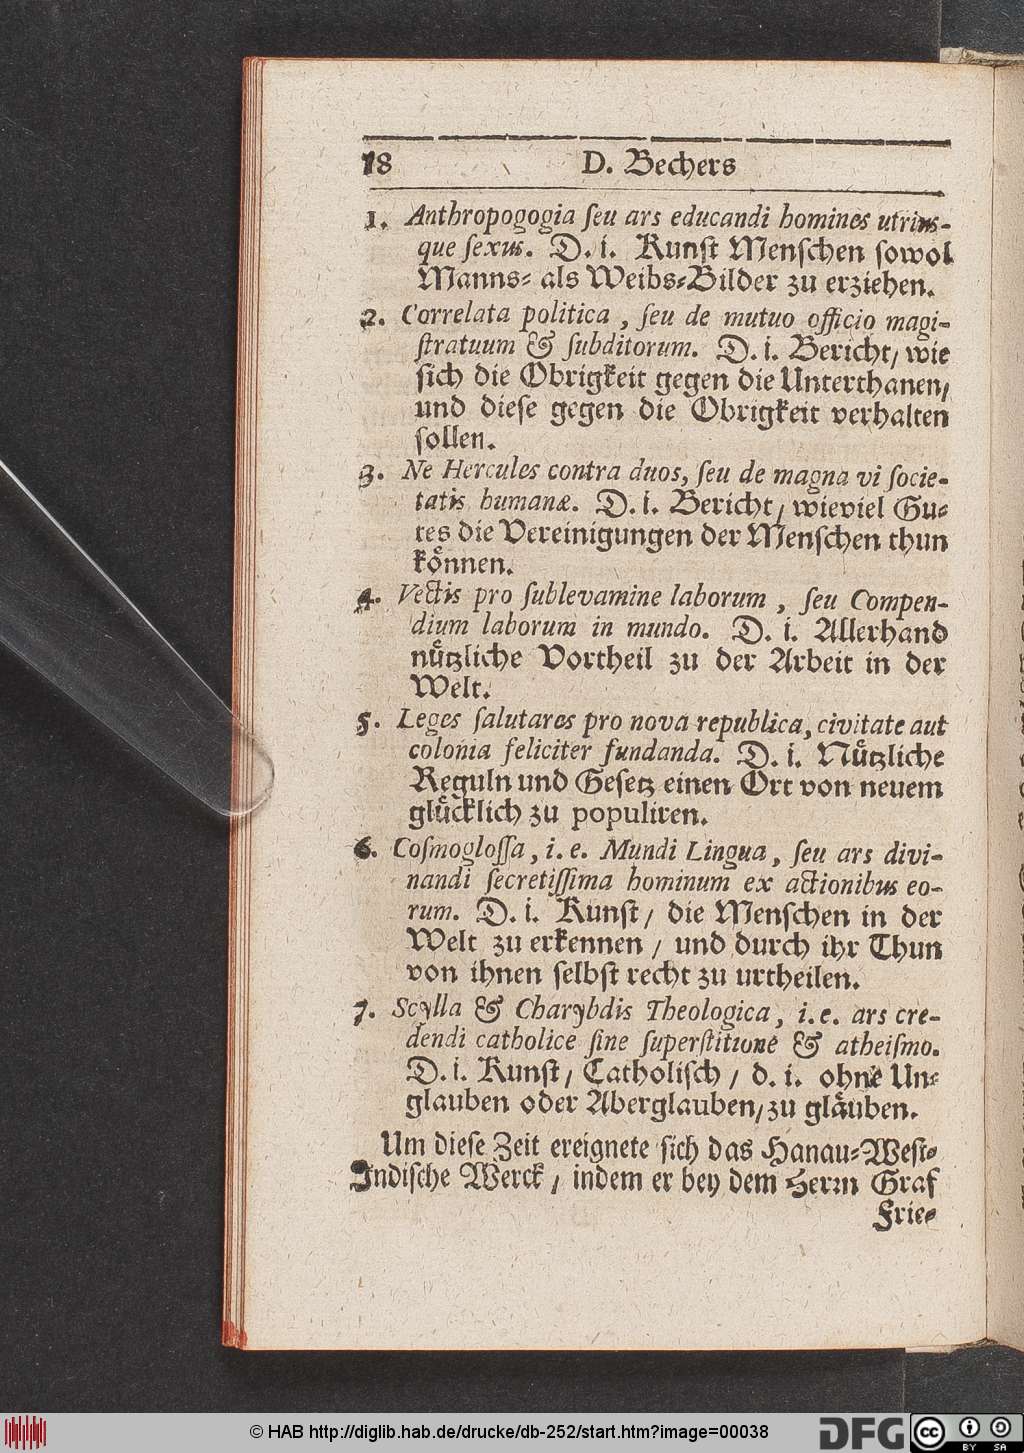 18 D. Bechers
1. Anthropogogia ſeu ars educandi homines utrius-
que ſexus. D. i. Kunſt Menſchen ſowol
Manns- als Weibs-Bilder zu erziehen.
2. Correlata politica, ſeu de mutuo officio magi-
ſtratuum & ſubditorum. D. i. Bericht/ wie
ſich die Obrigkeit gegen die Unterthanen/
und dieſe gegen die Obrigkeit verhalten
ſollen.
3. Ne Hercules contra duos, ſeu de magna vi ſocie-
tatis humanæ. D. i. Bericht/ wieviel Gu-
tes die Vereinigungen der Menſchen thun
koͤnnen.
4. Vectis pro ſublevamine laborum, ſeu Compen-
dium laborum in mundo. D. i. Allerhand
nuͤtzliche Vortheil zu der Arbeit in der
Welt.
5. Leges ſalutares pro nova republica, civitate aut
colonia feliciter fundanda. D. i. Nuͤtzliche
Reguln und Geſetz einen Ort von neuem
gluͤcklich zu populiren.
6. Coſmogloſſa, i. e. Mundi Lingua, ſeu ars divi-
nandi ſecretiſſima hominum ex actionibus eo-
rum. D. i. Kunſt/ die Menſchen in der
Welt zu erkennen/ und durch ihr Thun
von ihnen ſelbſt recht zu urtheilen.
7. Scylla & Charybdis Theologica, i. e. ars cre-
dendi catholice ſine ſuperſtitione & atheiſmo.
D. i. Kunſt/ Catholiſch/ d. i. ohne Un-
glauben oder Aberglauben/ zu glaͤuben.
Um dieſe Zeit ereignete ſich das Hanau-Weſt-
Indiſche Werck/ indem er bey dem Herrn Graf
Frie-
© HAB http://diglib.hab.de/drucke/db-252/start.htm?image=00038
DFG
cc BY SA